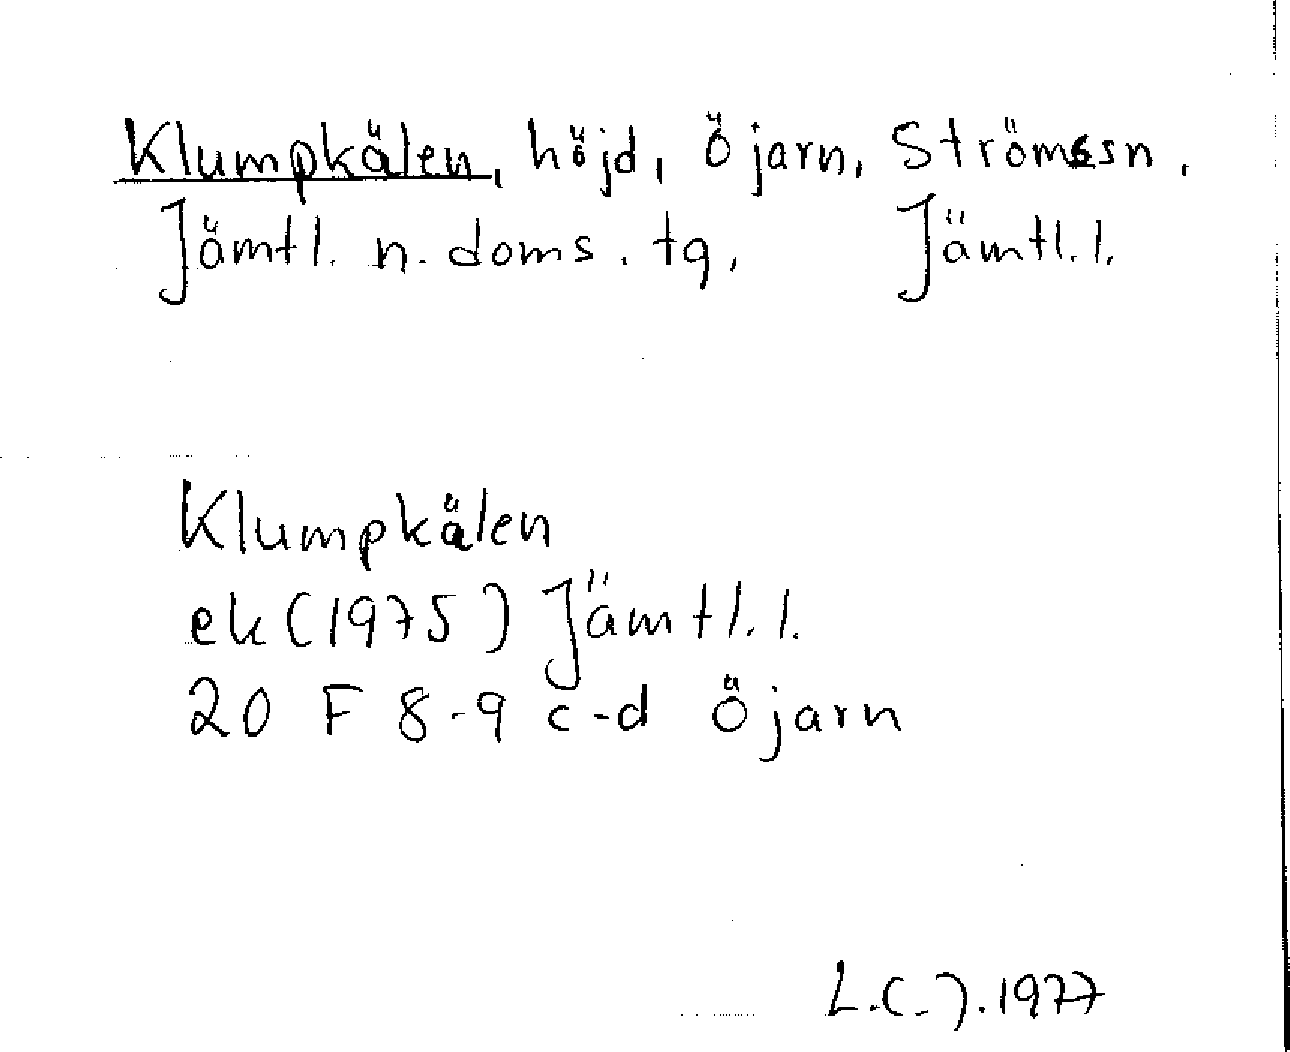 Klumpkälen, höjd, Öjarn, Strömssn.
Jämtl. n. doms. tg, Jämtl. l.
Klumpkälen
ek (1975) Jämtl. l.
20 F 8-9 c-d Öjarn
L.C.J. 1977